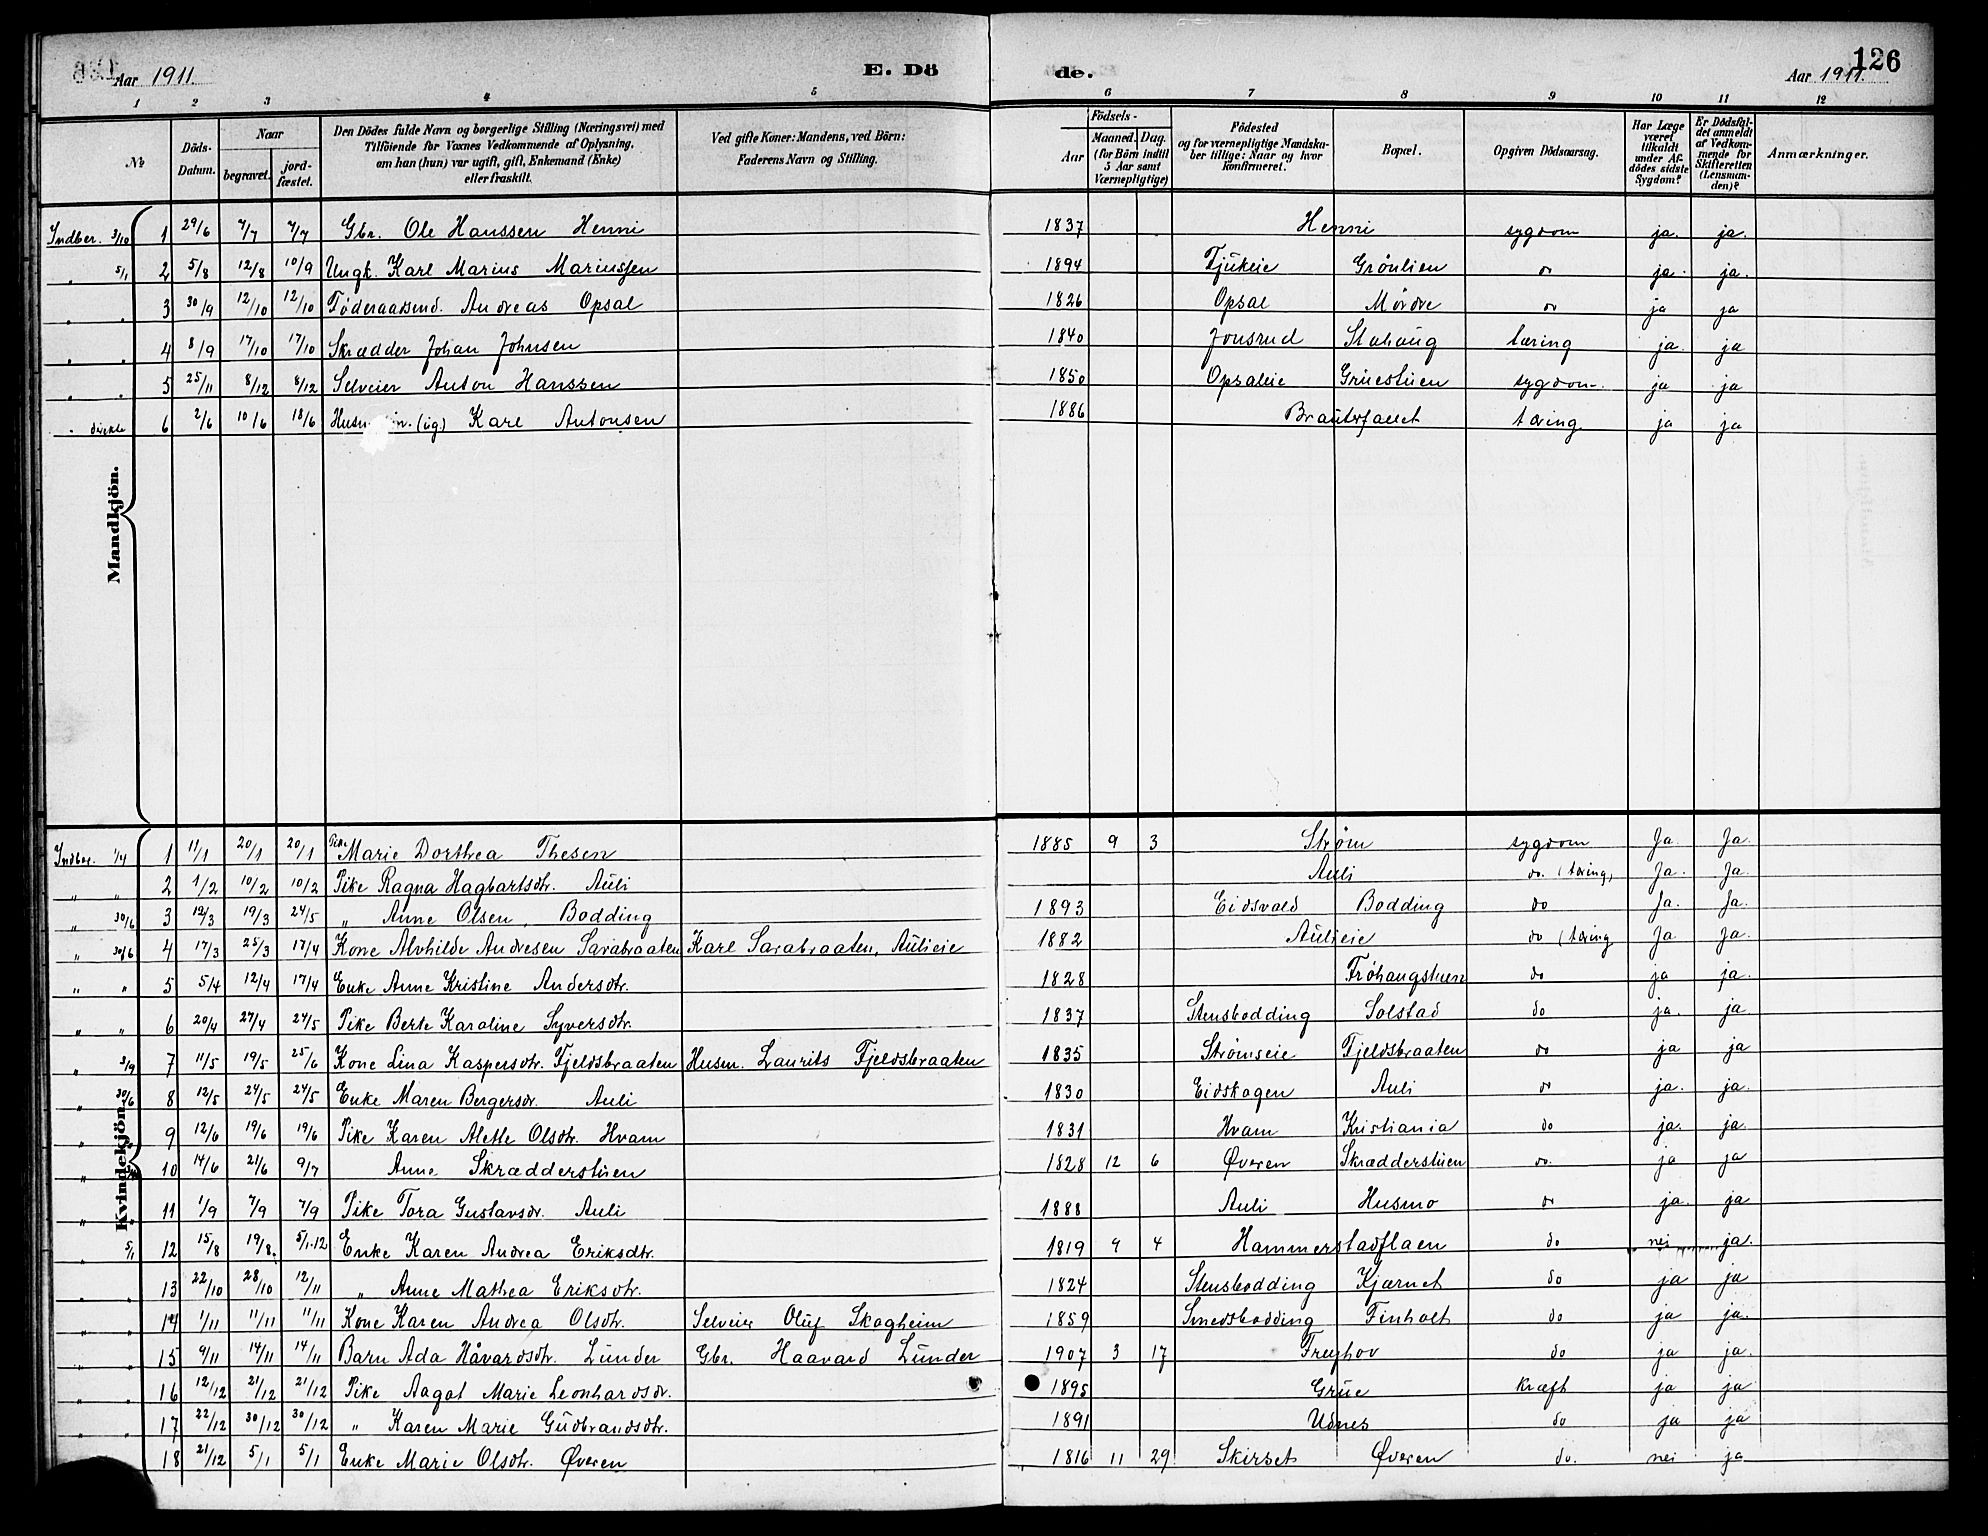 Aar 1911. E. Dö de. Aar 1911. 126
1 2 3 4 5 6 7 8 9 10 11 12
No Döds-Datum. Naar begravet. jord-fæstet. Den Dödes fulde Navn og borgerlige Stilling (Næringsvei) med Tilföiende for Voxnes Vedkommende af Oplysning, om han (hun) var ugift, gift, Enkemand (Enke) eller fraskilt. Ved gifte Koner: Mandens, ved Börn: Faderens Navn og Stilling. Födsels- Aar Maaned. Dag. (for Börn indtil 5 Aar samt Værnepligtige) Födested og for værnepligtige Mandskaber tillige: Naar og hvor konfirmeret. Bopæl. Opgiven Dödsaarsag. Har Læge været tilkaldt under Afdödes sidste Sygdom? Er Dödsfaldet anmeldt af Vedkommende for Skifteretten (Lensmanden)? Anmærkninger.
Mandkjön.
Indber. 3/10 1 29/6 7/7 7/7 Gbr. Ole Hanssen Henni 1837 Henni sygdom ja. ja.
„ 5/1 2 5/8 12/8 10/9 Ungk. Karl Marius Mariussen 1894 Fjukeie Grönlien do ja. ja.
„ „ 3 30/9 12/10 12/10 Föderaadsmd. Andreas Opsal 1826 Opsal Mördre do ja ja
„ „ 4 8/9 17/10 17/10 Skrædder Johan Johnsen 1840 Jonsrud Stahaug tæring ja. ja
„ „ 5 25/11 8/12 8/12 Selveier Anton Hanssen 1850 Opsaleie Gruestuen sygdom. ja ja
„ direkte 6 2/6 10/6 18/6 (ug) Karl Antonsen 1886 Brauterfallet tæring ja ja
Kvindekjön.
Indber. 1/4 1 11/1 20/1 20/1 Pike Marie Dorthea Thesen 1885 9 3 Strøm sygdom Ja. Ja.
„ „ 2 1/2 10/2 10/2 Pike Ragna Hagbartsdtr. Auli Auli do. (tæring) Ja. Ja.
„ 30/6 3 12/3 19/3 24/5 „ Anne Olsen Bodding 1893 Eidsvold Bodding do Ja. Ja.
„ 30/6 4 17/3 25/3 17/4 Kone Alvhilde Andresen Sarabraaten Karl Sarabraaten, Aulieie 1882 Aulieie do (tæring Ja Ja.
„ „ 5 5/4 12/4 17/4 Enke Anne Kristine Andersdtr. 1828 Fröhaugstuen do ja ja.
„ „ 6 20/4 27/4 24/5 Pike Berte Karoline Syversdtr. 1837 Stensbodding Solstad do ja. ja.
„ 3/9 7 11/5 19/5 25/6 Kone Lina Kaspersdtr. Fjeldsbraaten Husm. Laurits Fjeldsbraaten 1835 Strømseie Fjeldsbraaten do ja ja
„ 30/6 8 12/5 24/5 24/5 Enke Maren Bergersdr. Auli 1830 Eidskogen Auli do ja. ja.
„ 9 12/6 19/6 19/6 Pike Karen Alette Olsdtr. Hvam 1831 Hvam Kristiania do ja. ja.
„ 10 14/6 21/6 9/7 Anne Skrædderstuen 1828 12 6 Øveren Skrædderstuen do. ja ja
„ „ 11 1/9 7/9 7/9 Pike Tora Gustavsdr. Auli 1888 Auli Husmo do ja. ja
„ 5/1 12 15/8 19/8. 5/1.12 Enke Karen Andrea Eriksdtr. 1819 9 4 Hammerstadflaen do nei ja.
„ „ 13 22/10 28/10 12/11 „ Anne Mathea Eriksdtr. 1824 Stensbodding Kjærnet do ja ja
„ „ 14 1/11 11/11 11/11 Kone Karen Andrea Olsdtr. Selveier Oluf Skogheim 1859 Smedsbodding Finholt do ja ja.
„ „ 15 9/11 14/11 14/11 Barn Ada Håvardsdtr. Lunder Gbr. Haavard Lunder 1907 3 17 Frøyhov do ja ja.
„ „ 16 12/12 21/12 21/12 Pike Aagot Marie Leonhardsdr. 1895 Grue kræft ja ja
„ „ 17 22/12 30/12 30/12 „ Karen Marie Gudbrandsdtr. 1891 Udnes do ja ja
18 21/12 5/1 5/1 Enke Marie Olsdtr. Øveren 1816 11 29 Skirset Øveren do. nei ja